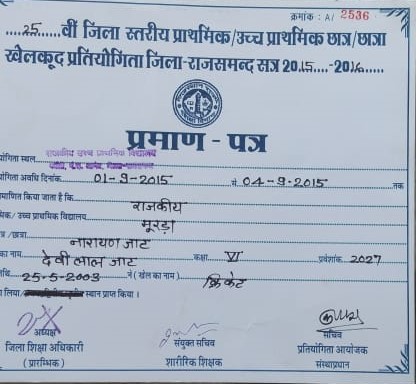 क्रमांक : A/ 2536
.....25.....वीं जिला स्तरीय प्राथमिक/उच्च प्राथमिक छात्र/छात्रा
खेलकूद प्रतियोगिता जिला-राजसमन्द सत्र 2015....-2016......
प्रमाण - पत्र
योगिता स्थल उच्च प्राथमिक विद्यालय
योगिता अवधि दिनांक 01-9-2015 से 04-9-2015 तक
माणित किया जाता है कि राजकीय
मिक/ उच्च प्राथमिक विद्यालय मूरड़ा
त्र /छात्रा नारायण जाट
का नाम देवी लाल जाट कक्षा VI प्रवेशांक 2027
तिथि 25-5-2003 ने ( खेल का नाम ) क्रिकेट
लिया/ स्थान प्राप्त किया ।
अध्यक्ष
जिला शिक्षा अधिकारी
( प्रारम्भिक )
संयुक्त सचिव
शारीरिक शिक्षक
सचिव
प्रतियोगिता आयोजक
संस्थाप्रधान